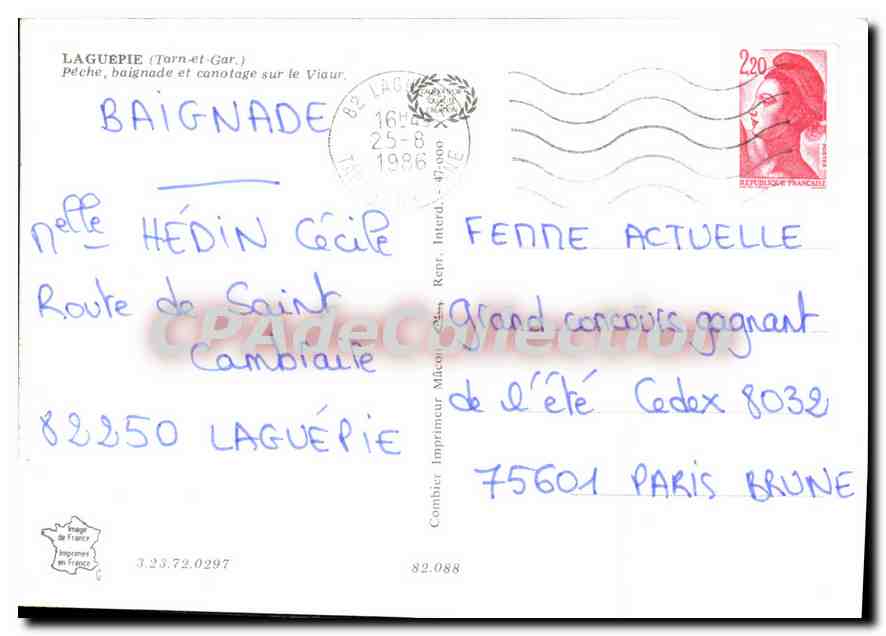 LAGUÉPIE (Tarn-et-Gar.)
Pêche, baignade et canotage sur le Viaur.
BAIGNADE
Melle HÉDIN Cécile
Route de Saint
Cambraite
82250 LAGUÉPIE
82 LAGU
16H45
25-8
1986
2,20
POSTES
REPUBLIQUE FRANÇAISE
FEMME ACTUELLE
grand concours gagnant
de l'été Cedex 8032
75601 PARIS BRUNE
Combier Imprimeur Mâcon Repr. Interd. - 47.000
CPAdeCollection
Image
de France
Imprimée
en France
3.23.72.0297
82.088